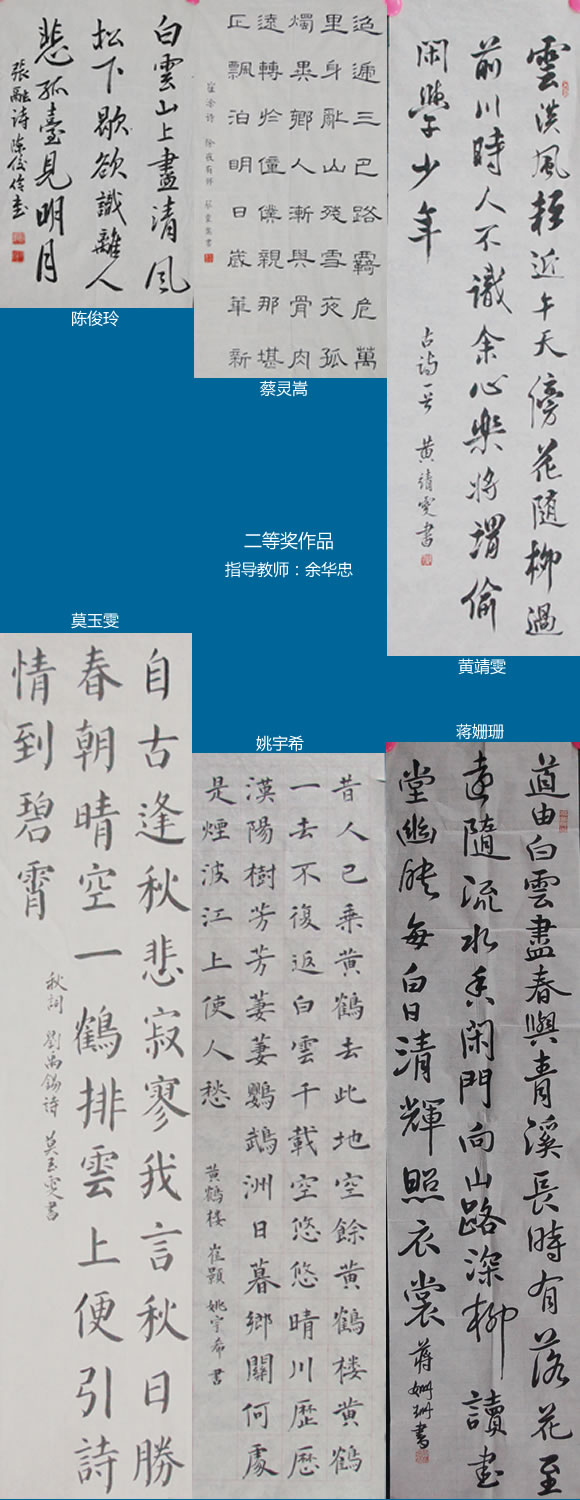 白雲山上盡清風
松下歇欲識離人
悲孤臺見明月
張融詩 陈俊伶書
陈俊玲
迢遞三巴路羈危萬
里身亂山殘雪夜孤
燭異鄉人漸與骨肉
遠轉於僮僕親那堪
正飄泊明日歲華新
崔塗詩 除夜有懷 蔡靈嵩書
蔡灵嵩
雲淡風輕近午天傍花随柳過
前川時人不識余心樂将謂偷
閑學少年
古詩一首 黄靖雯書
黄靖雯
二等奖作品
指导教师：余华忠
莫玉雯
自古逢秋悲寂寥我言秋日勝
春朝晴空一鶴排雲上便引詩
情到碧霄
秋詞 劉禹錫詩 莫玉雯書
姚宇希
昔人已乘黄鶴去此地空餘黄鶴楼黄鶴
一去不復返白雲千載空悠悠晴川歷歷
漢陽樹芳芳萋萋鸚鵡洲日暮鄉關何處
是煙波江上使人愁
黄鶴楼 崔顥 姚宇希書
蒋姗珊
道由白雲盡春與青溪長時有落花至
遠隨流水香閑門向山路深柳讀書
堂幽映每白日清輝照衣裳
蔣姗珊書